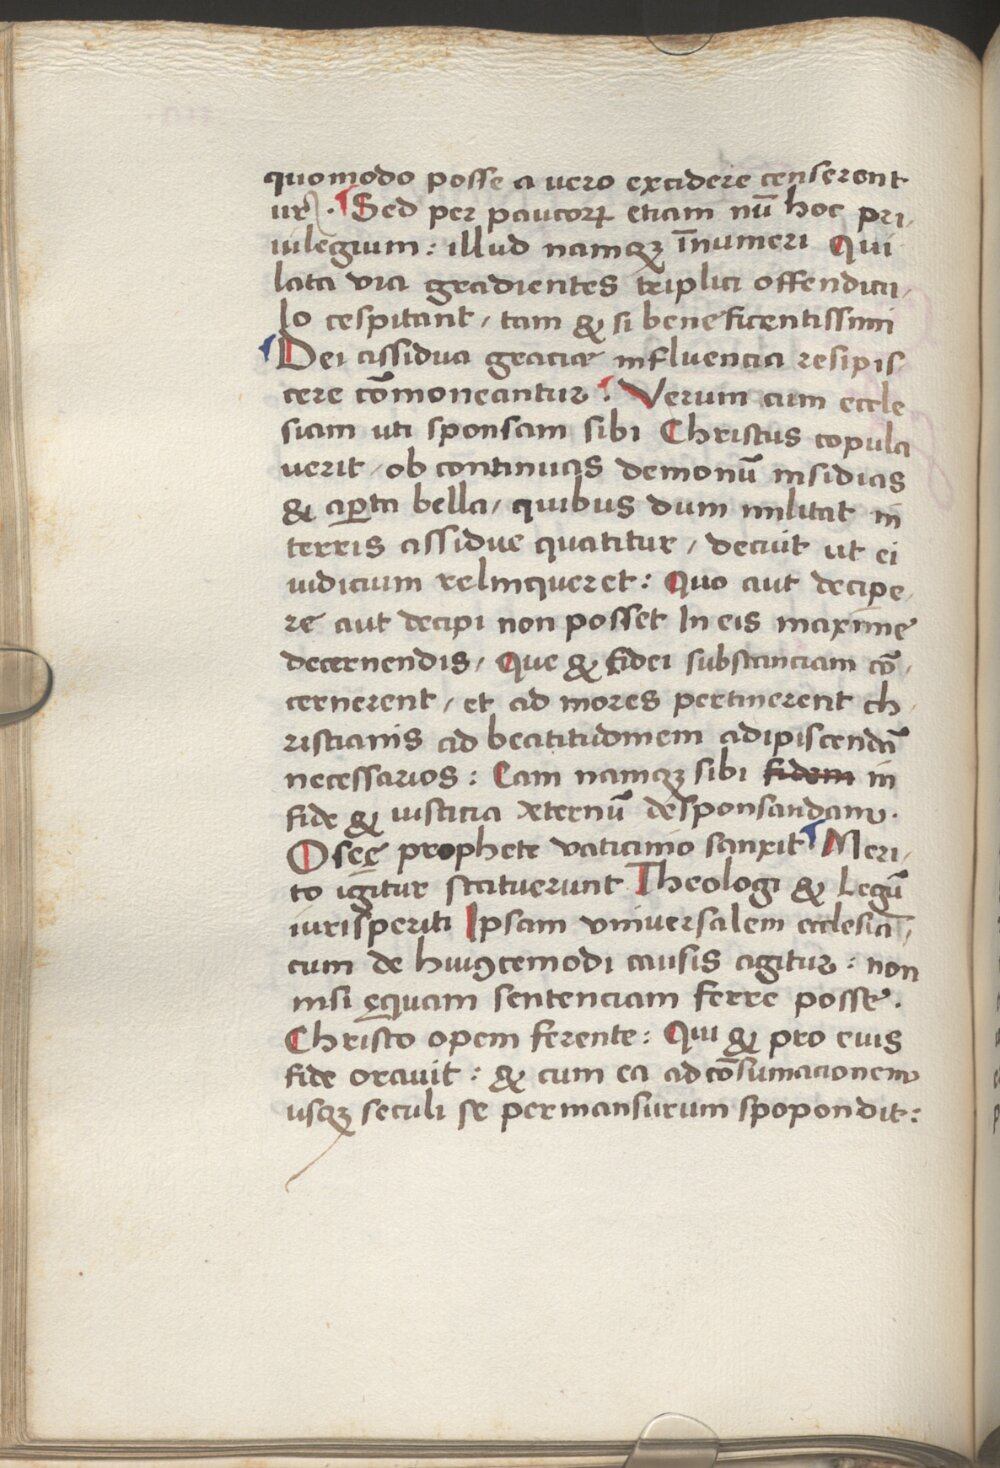 quomodo posse a vero excidere censerent
ur. ¶ Sed per paucorꝝ etiam nū hoc pri,
uilegium: illud namqꝫ īnumeri Qui
lata via gradientes triplici offendicu,
lo cespitant, tam & si beneficentissimi
¶ Dei assidua graciæ influencia resipis
cere cōmoneantur ¶ Verum cum eccle
siam uti sponsam sibi Christus copula
uerit, ob continuas demonū insidias
& aꝑta bella, quibus dum militat in
terris assidue quatitur, decuit ut ei
iudicium relinqueret: Quo aut decipe,
re aut decipi non posset In eis maxime
decernendis, Que & fidei substanciam cō,
cernerent, et ad mores pertinerent ch,
ristianis ad beatitudinem adipiscendā
necessarios: Eam namqꝫ sibi fidem in
fide & iusticia æternū desponsandam.
Oseę prophete vaticinio sanxit ¶ Meri,
to igitur statuerunt Theologi & Legū
iurisperiti Ipsam vniuersalem ecclesiā,
cum de huiꝰcemodi causis agitur: non
nisi ęquam sentenciam ferre posse.
Christo opem ferente: Qui & pro eius
fide orauit: & cum ea ad cōsumacionem
usqꝫ seculi se permansurum spopondit: